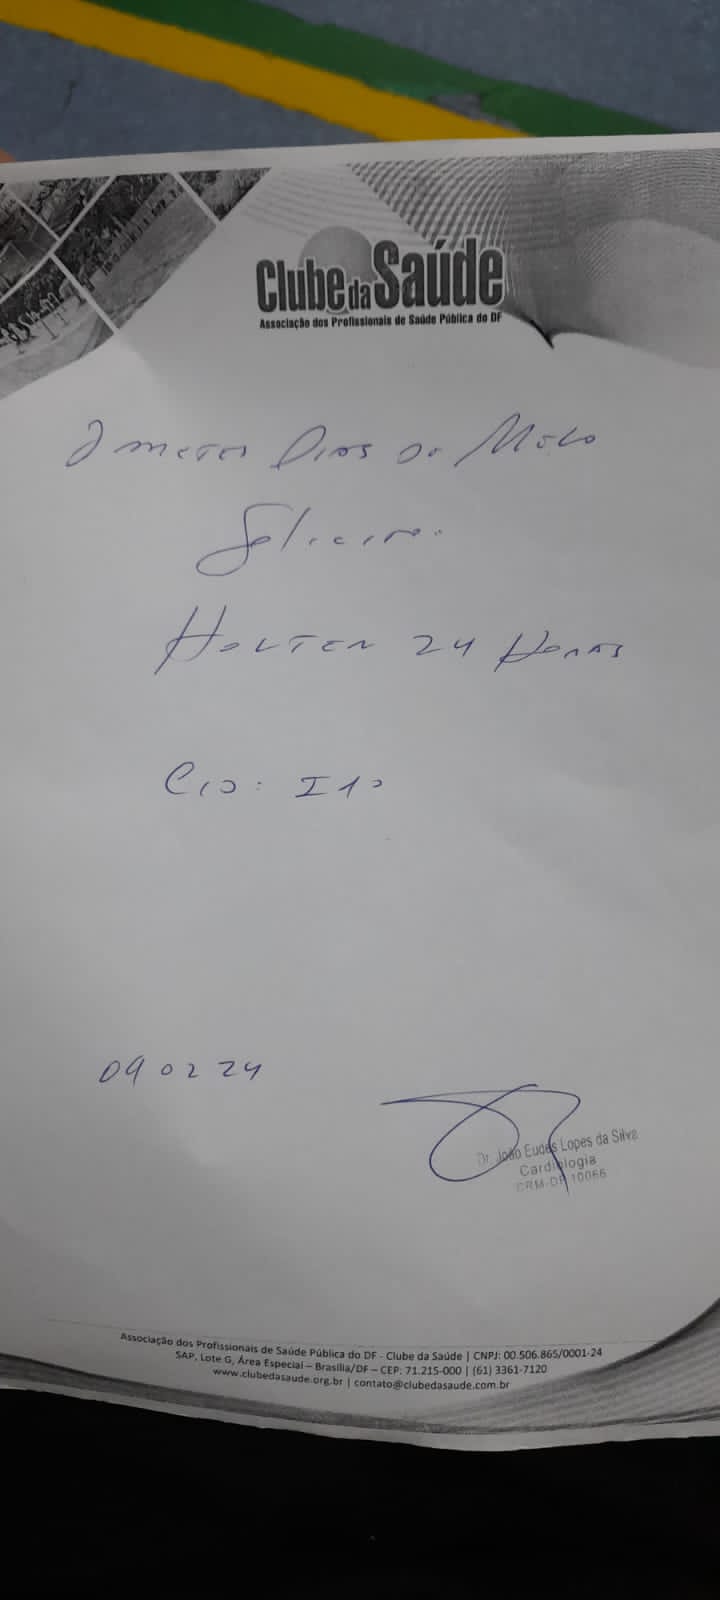 Clube da Saúde
Associação dos Profissionais de Saúde Pública do DF
Dias de Melo
Solicito.
HOLTER 24 HORAS
CID: I10
09 02 24
Dr. João Eudes Lopes da Silva
Cardiologia
CRM-DF 10066
Associação dos Profissionais de Saúde Pública do DF - Clube da Saúde | CNPJ: 00.506.865/0001-24
SAP, Lote G, Área Especial – Brasília/DF – CEP: 71.215-000 | (61) 3361-7120
www.clubedasaude.org.br | contato@clubedasaude.com.br